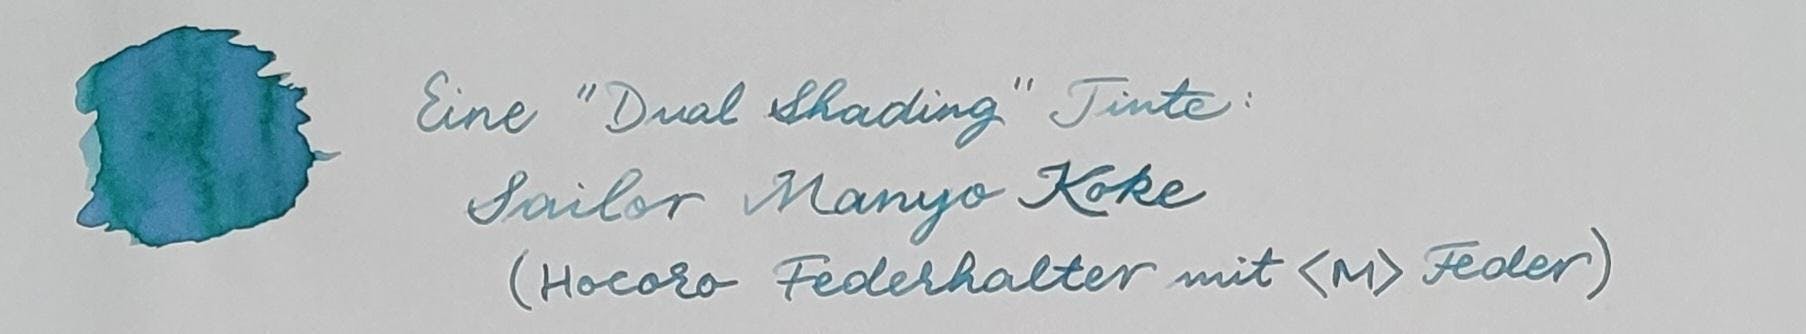 Eine "Dual Shading" Tinte:
Sailor Manyo Koke
(Hocoro Federhalter mit <M> Feder)